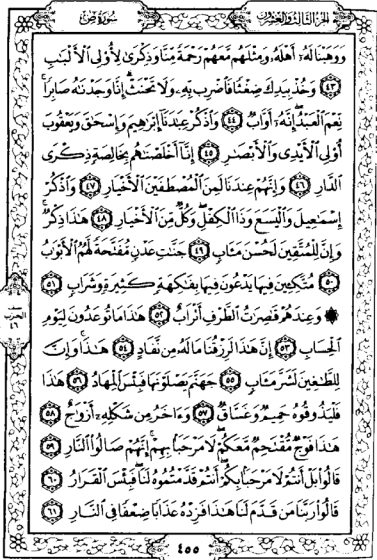 الجزء الثالث والعشرون
سورة ص
وَوَهَبْنَا لَهُۥٓ أَهْلَهُۥ وَمِثْلَهُم مَّعَهُمْ رَحْمَةً مِّنَّا وَذِكْرَىٰ لِأُو۟لِى ٱلْأَلْبَـٰبِ
٤٣ وَخُذْ بِيَدِكَ ضِغْثًا فَٱضْرِب بِّهِۦ وَلَا تَحْنَثْ إِنَّا وَجَدْنَـٰهُ صَابِرًا
نِّعْمَ ٱلْعَبْدُ إِنَّهُۥٓ أَوَّابٌ ٤٤ وَٱذْكُرْ عِبَـٰدَنَآ إِبْرَٰهِيمَ وَإِسْحَـٰقَ وَيَعْقُوبَ
أُو۟لِى ٱلْأَيْدِى وَٱلْأَبْصَـٰرِ ٤٥ إِنَّآ أَخْلَصْنَـٰهُم بِخَالِصَةٍ ذِكْرَى
ٱلدَّارِ ٤٦ وَإِنَّهُمْ عِندَنَا لَمِنَ ٱلْمُصْطَفَيْنَ ٱلْأَخْيَارِ ٤٧ وَٱذْكُرْ
إِسْمَـٰعِيلَ وَٱلْيَسَعَ وَذَا ٱلْكِفْلِ وَكُلٌّ مِّنَ ٱلْأَخْيَارِ ٤٨ هَـٰذَا ذِكْرٌ
وَإِنَّ لِلْمُتَّقِينَ لَحُسْنَ مَـَٔابٍ ٤٩ جَنَّـٰتِ عَدْنٍ مُّفَتَّحَةً لَّهُمُ ٱلْأَبْوَٰبُ
٥٠ مُتَّكِـِٔينَ فِيهَا يَدْعُونَ فِيهَا بِفَـٰكِهَةٍ كَثِيرَةٍ وَشَرَابٍ ٥١
۞ وَعِندَهُمْ قَـٰصِرَٰتُ ٱلطَّرْفِ أَتْرَابٌ ٥٢ هَـٰذَا مَا تُوعَدُونَ لِيَوْمِ
ٱلْحِسَابِ ٥٣ إِنَّ هَـٰذَا لَرِزْقُنَا مَا لَهُۥ مِن نَّفَادٍ ٥٤ هَـٰذَا وَإِنَّ
لِلطَّـٰغِينَ لَشَرَّ مَـَٔابٍ ٥٥ جَهَنَّمَ يَصْلَوْنَهَا فَبِئْسَ ٱلْمِهَادُ ٥٦ هَـٰذَا
فَلْيَذُوقُوهُ حَمِيمٌ وَغَسَّاقٌ ٥٧ وَءَاخَرُ مِن شَكْلِهِۦٓ أَزْوَٰجٌ ٥٨
هَـٰذَا فَوْجٌ مُّقْتَحِمٌ مَّعَكُمْ لَا مَرْحَبًۢا بِهِمْ إِنَّهُمْ صَالُوا۟ ٱلنَّارِ ٥٩
قَالُوا۟ بَلْ أَنتُمْ لَا مَرْحَبًۢا بِكُمْ أَنتُمْ قَدَّمْتُمُوهُ لَنَا فَبِئْسَ ٱلْقَرَارُ ٦٠
قَالُوا۟ رَبَّنَا مَن قَدَّمَ لَنَا هَـٰذَا فَزِدْهُ عَذَابًا ضِعْفًا فِى ٱلنَّارِ ٦١
٤٥٥